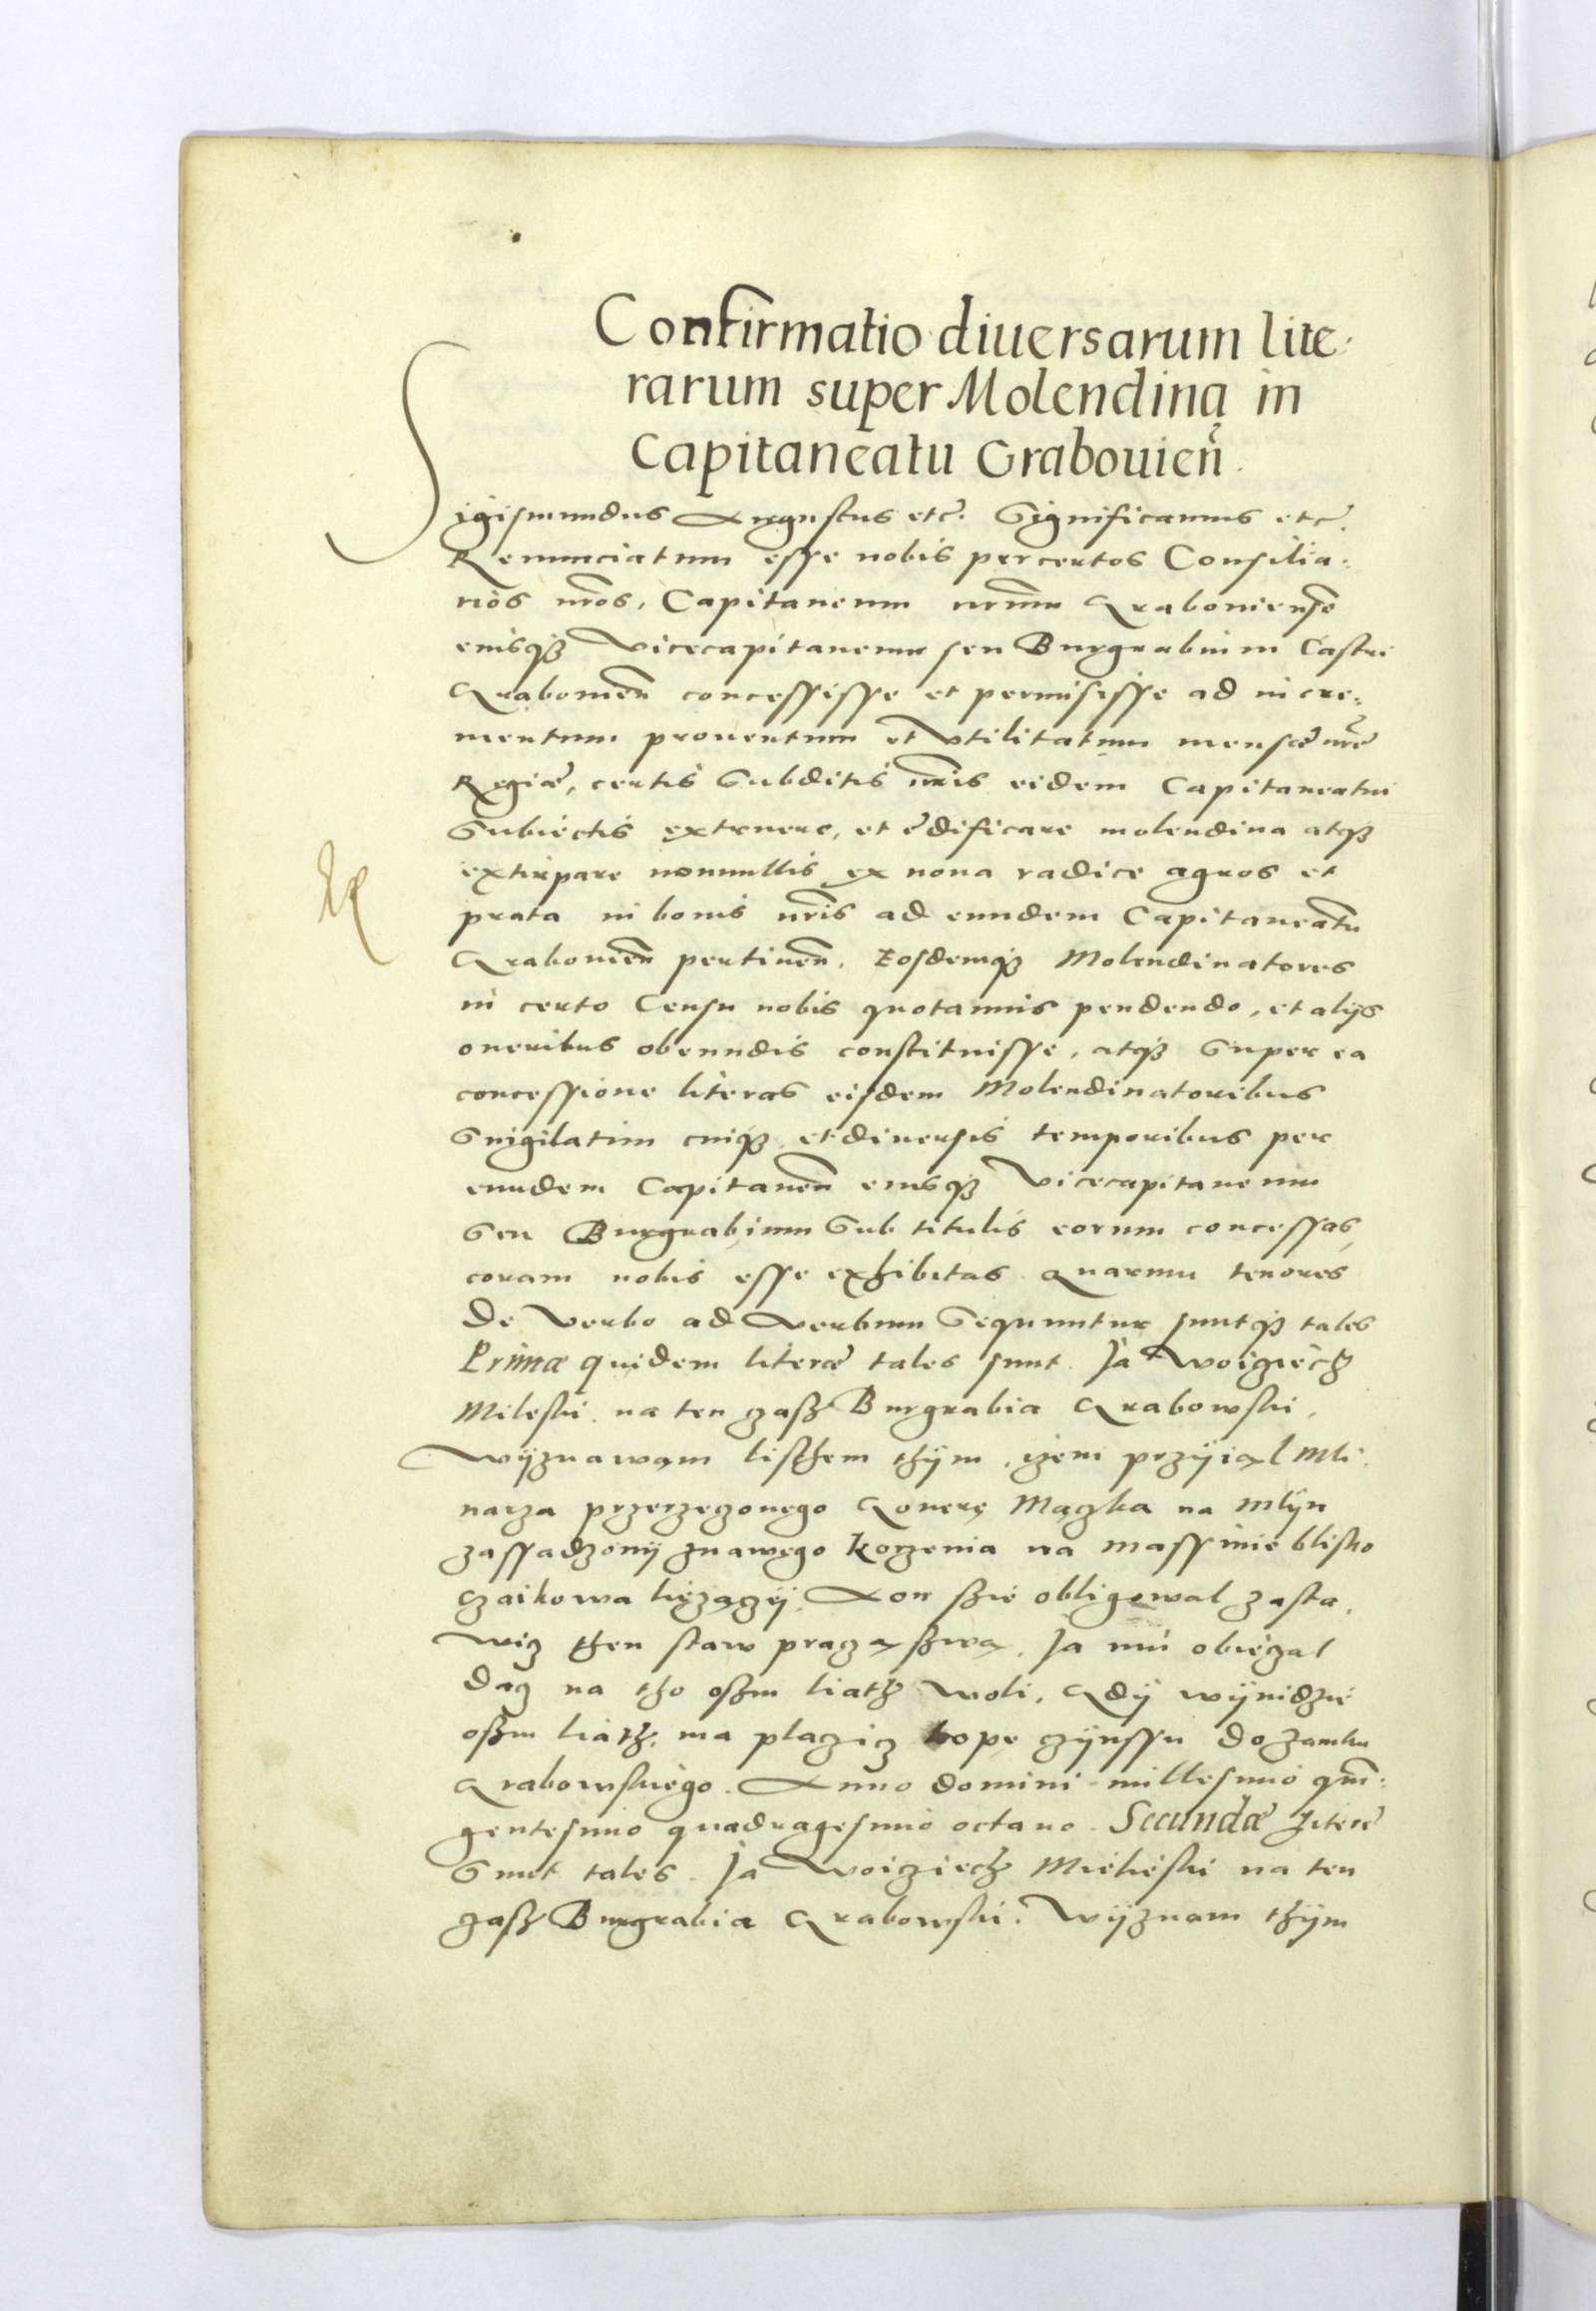 Confirmatio diuersarum lite:
rarum super Molendina in
Capitaneatu Grabouien̄.
Sigismundus Augustus etc̄. Significamus etc̄.
Renunciatum esse nobis per certos Consilia:
rios nr̄os, Capitaneum nr̄um Grabouiensē
eiusqȝ Vicecapitaneum seu Burgrabium Castri
Grabouien̄ concessisse et permisisse ad incre:
mentum prouentum et Vtilitatum mensæ nr̄e
Regiæ, certis Subditis nr̄is eidem Capitaneatui
Subiectis extruere, et ędificare molendina atqȝ
extirpare nonnullis ex noua radice agros et
prata in bonis nr̄is ad eundem Capitaneatū
Grabouien̄ pertinen̄. Eosdemqȝ Molendinatores
in certo Censu nobis quotannis pendendo, et alijs
oneribus obeundis constituisse, atqȝ Super ea
concessione literas eisdem Molendinatoribus
Singilatim cuiqȝ et diuersis temporibus per
eundem Capitaneū eiusqȝ Vicecapitaneum
Seu Burgrabium Sub titulis eorum concessas,
coram nobis esse exhibitas. Quarum tenores
de Verbo ad Verbum Sequuntur suntqȝ tales
Primæ quidem literæ tales sunt. Ja Woiciech
Mileski na ten czaß Burgrabia Grabowski,
Wyznawam listhem thym, yzem przyiął Mli:
narza przerzeczonego Gonerę Mączka na Mlyn
zassadzony znawego korzenia na massinie blisko
czaikowa liezączy. A on ßie obligowal zasta,
wicz then staw praczą ßwą. Ja mu obieczal
dacz na tho oßm liath woli, Gdy wynidzie
oßm liath, ma placzicz kope czynssu do zamku
Grabowskiego. Anno domini millesimo qui͞n:
gentesimo quadragesimo octauo. Secundæ literæ
Sunt tales. Ja Woiciech Mieleski na ten
czaß Burgrabia Grabowski. Wyznam thym